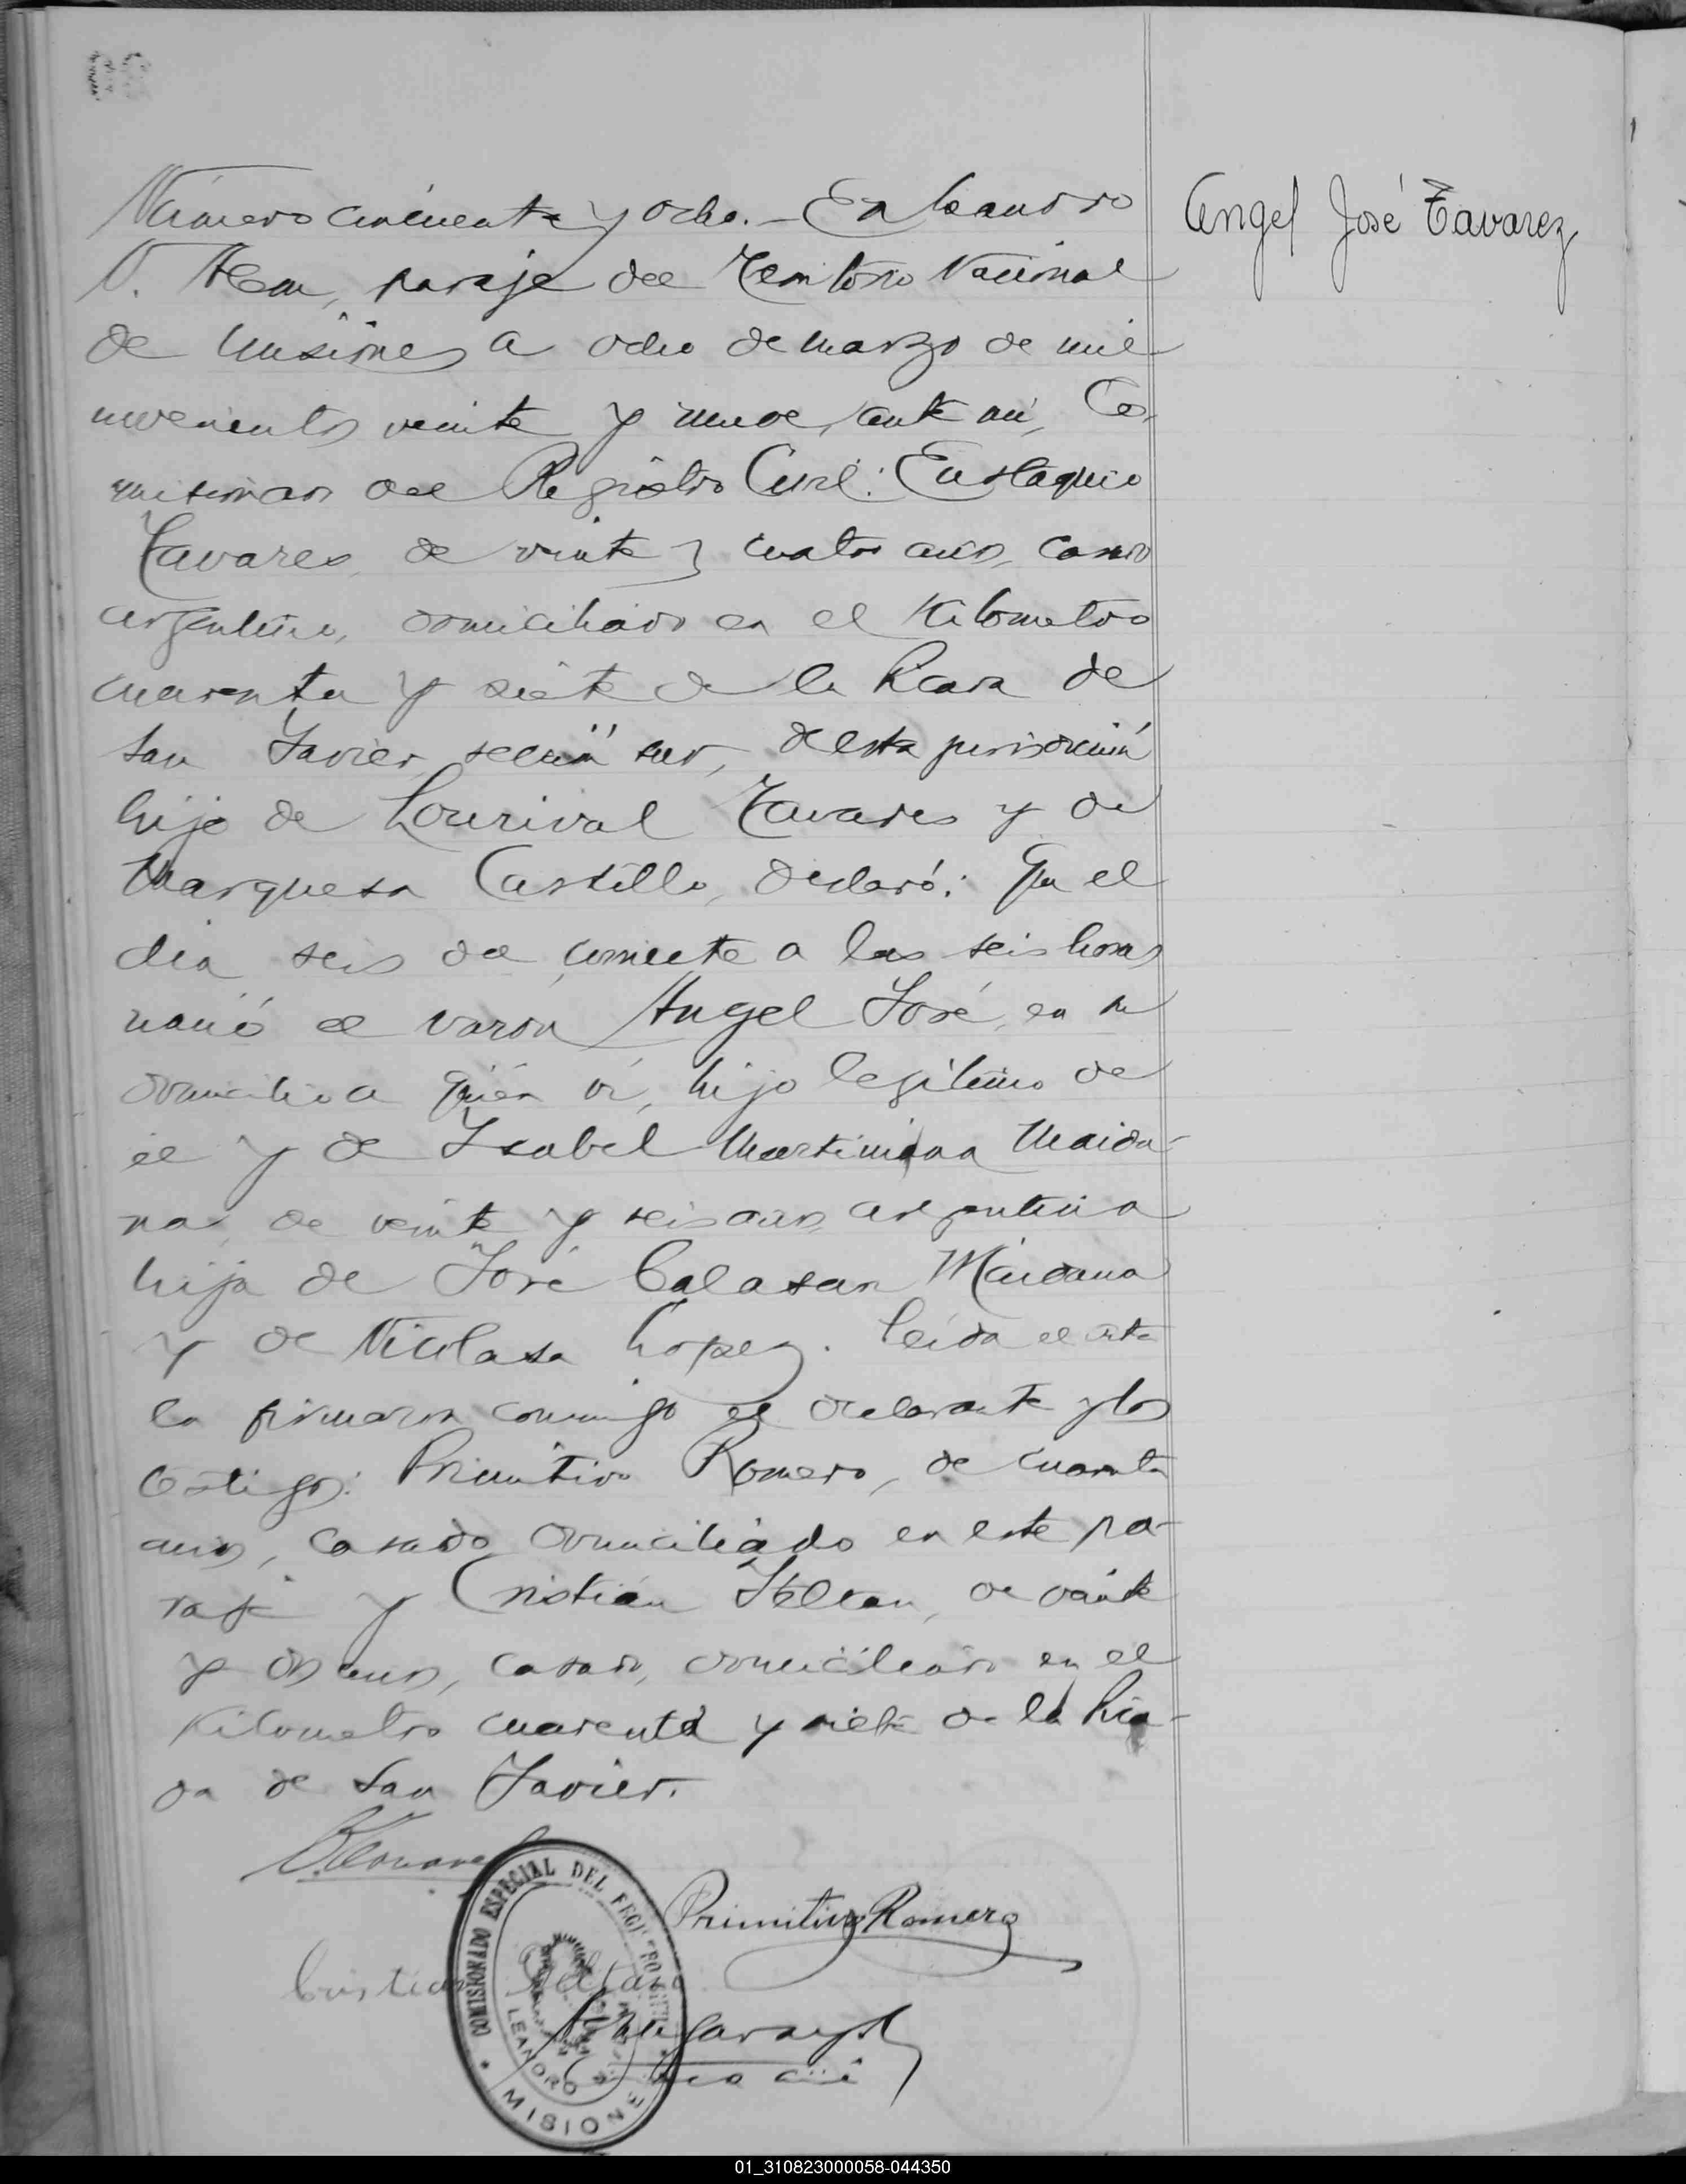 Angel José Tavarez
Número cincuenta y ocho. - En Leandro
N. Alem, paraje del Territorio Nacional
de Misiones a ocho de marzo de mil
novecientos veinte y nueve, ante mi, Co-
misionado del Registro Civil: Eustaquio
Tavares, de veinte y cuatro años, casado
argentino, domiciliado en el Kilometro
cuarenta y siete de la Picada de
San Javier, sección sud, de esta jurisdicción
hijo de Lourival Tavares y de
Marquesa Castillo, declaró: Que el
dia seis del corriente a las seis horas
nació el varón Angel José, en su
domicilio a quién ví, hijo legítimo de
él y de Isabel Martiniana Maida-
na, de veinte y seis años, argentina
hija de José Calasan Maidana
y de Nicolasa Lopez. Leída el acta
la firmaron conmigo el declarante y los
testigos: Primitivo Romero, de cuarenta
años, casado, domiciliado en este pa-
raje y Cristián, de veinte
y dos años, casado, domiciliado en el
Kilometro cuarenta y siete de la Pica-
da de San Javier.
Primitivo Romero
Cristian
COMISIONADO ESPECIAL DEL REGISTRO CIVIL
LEANDRO N.
MISIONES
01_310823000058-044350